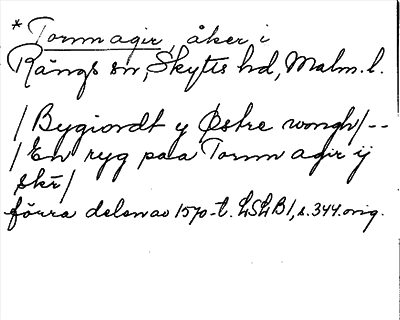 * Tormm agir, åker i
Rängs sn, Skytts hd, Malm. l.
/ Bygiordt y Østre wongh / --
/ En ryg paa Tormm agir ij
skr̄ /
förra delen av 1570-t. LSLB1, s. 344. orig.